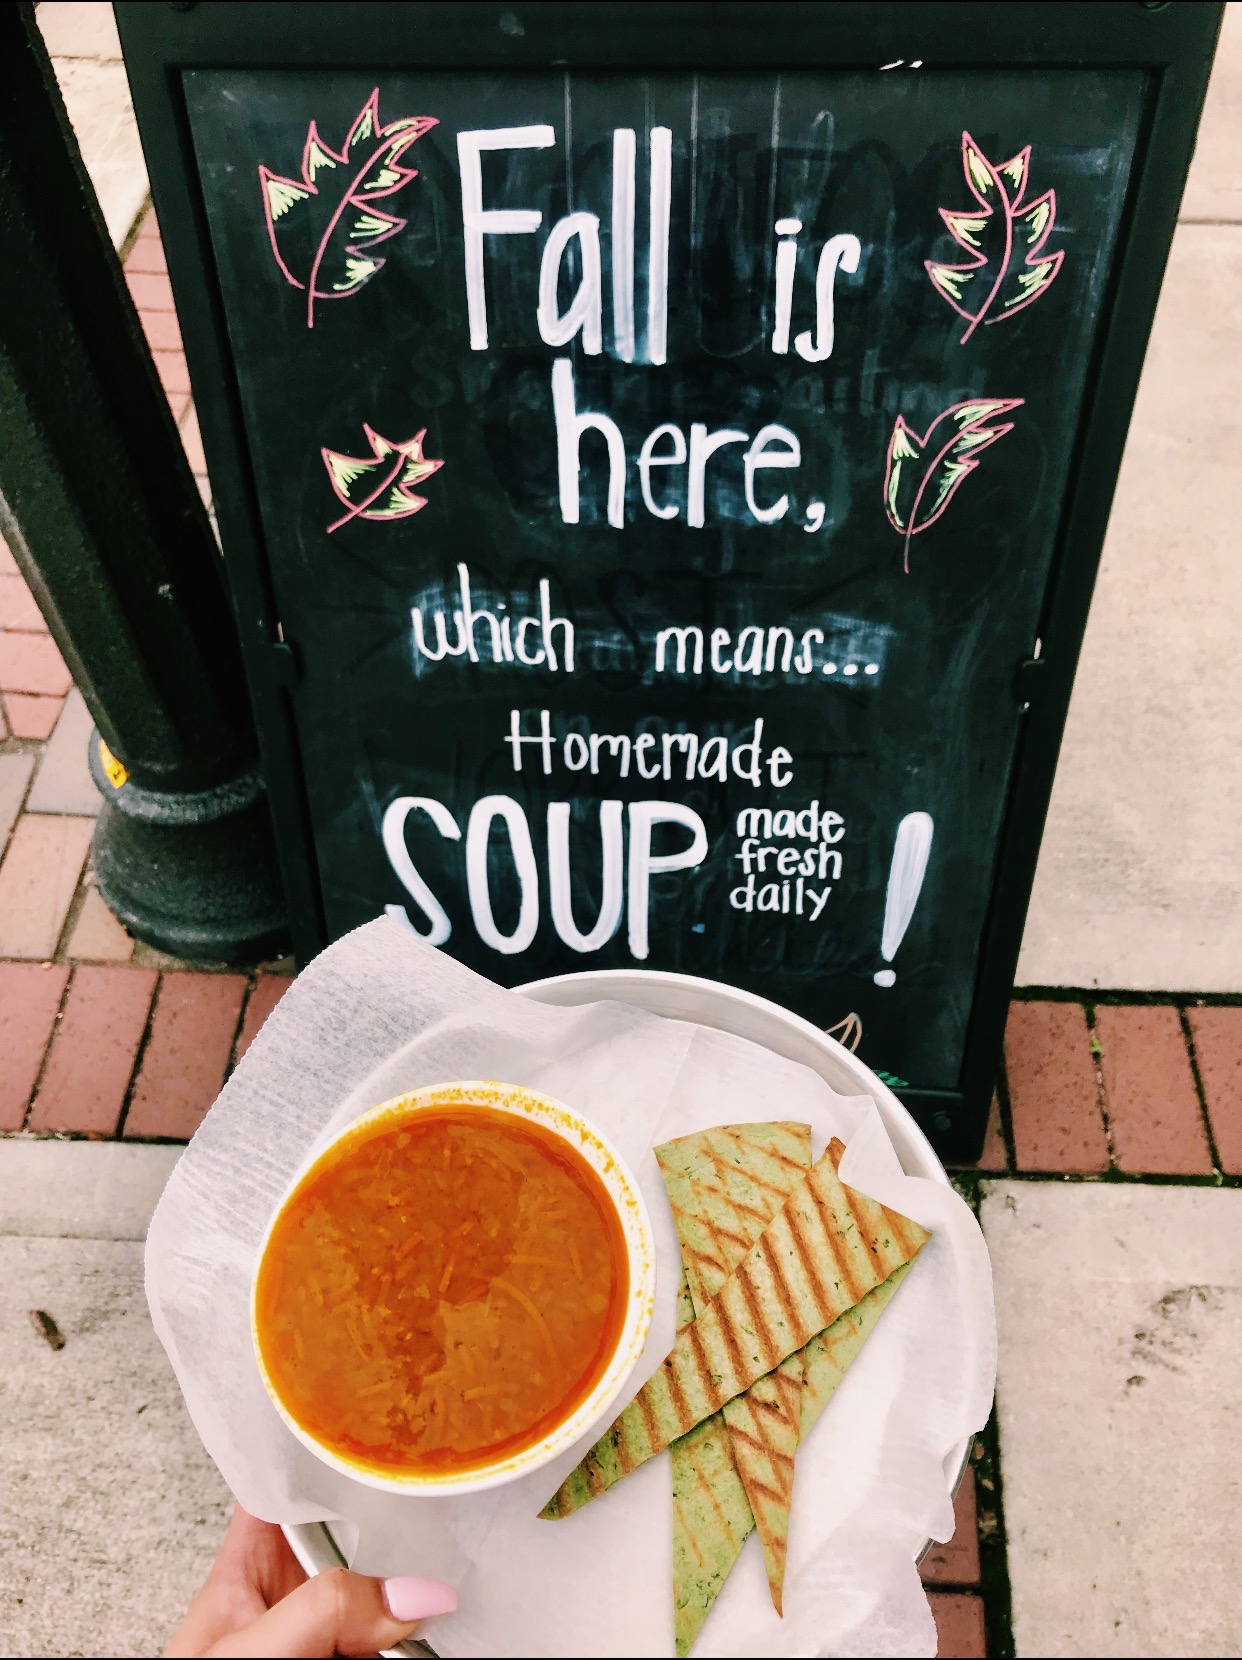 Fall is
here,
which means...
Homemade
SOUP made fresh daily !